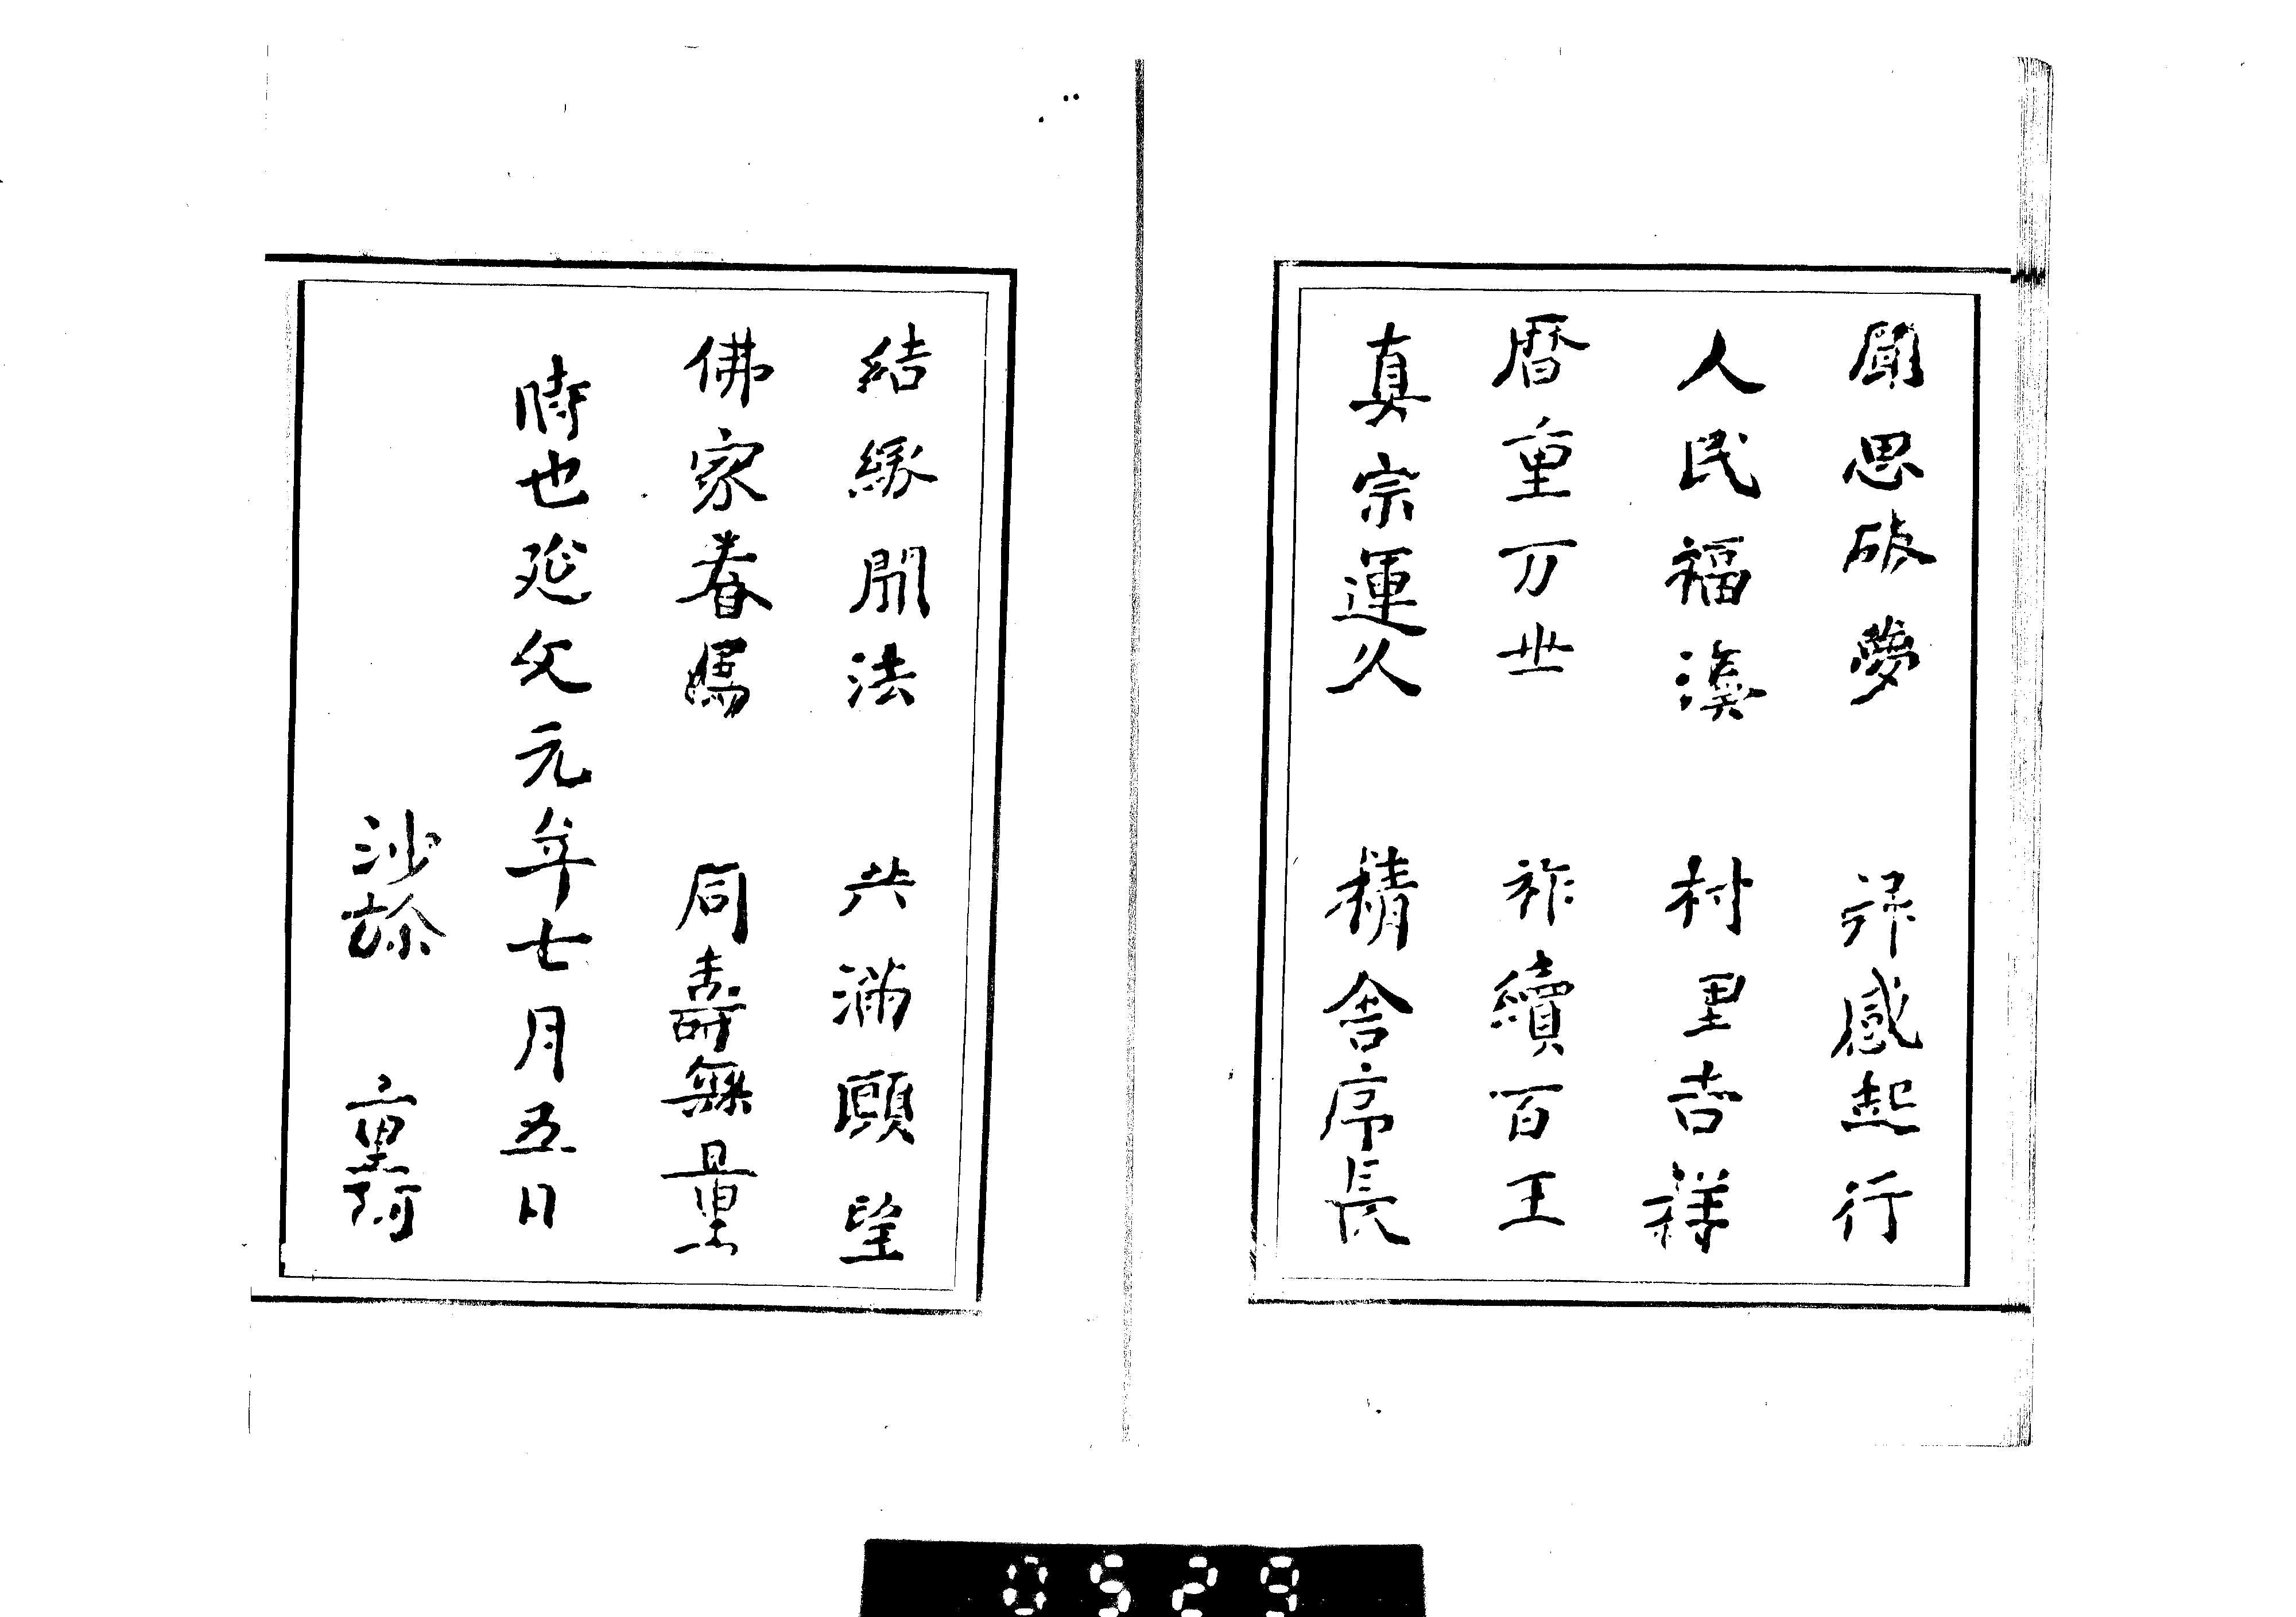 思夢　感起行
人民福　村里吉祥
暦重万世　祚續百王
真宗運久　精舎序長
結縁聞法　共滿願望
佛家春　同壽無量
時也延文元年七月五日
沙弥　重阿
0529